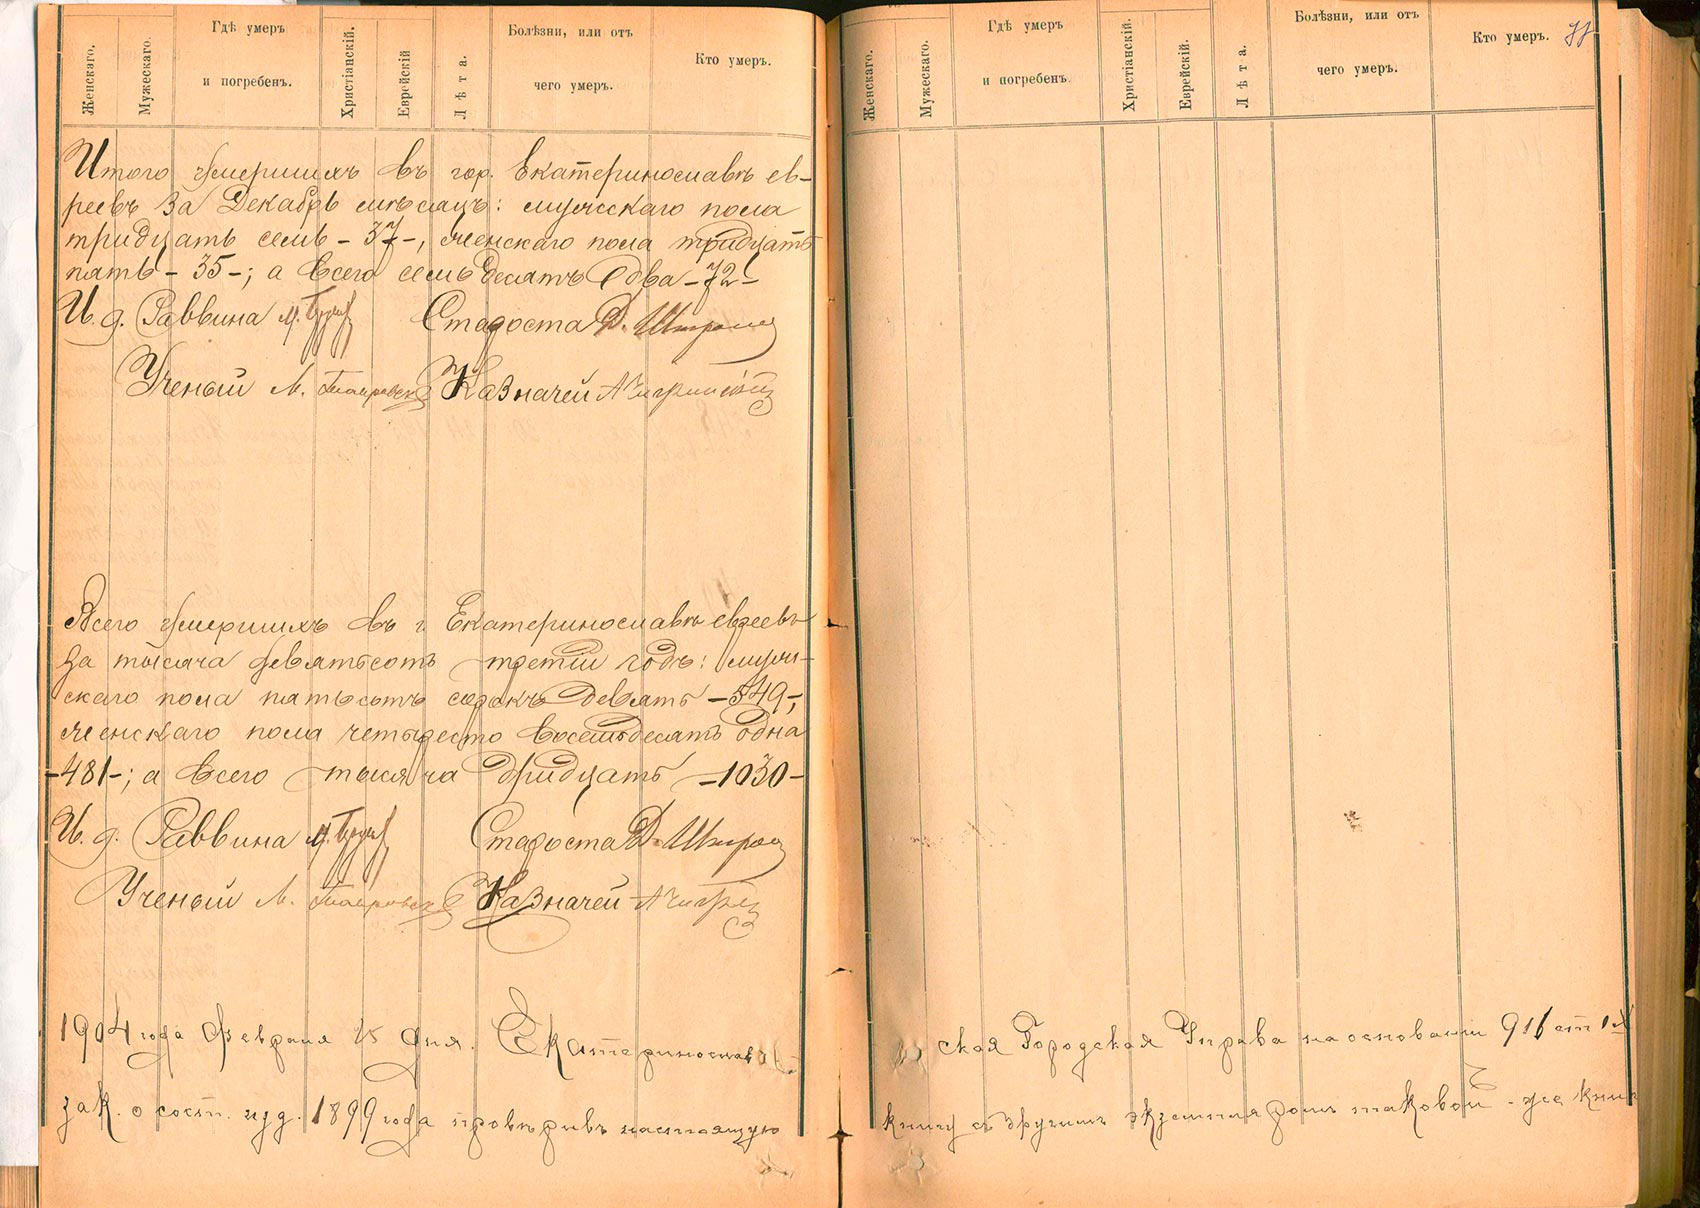 Женскаго.
Мужескаго.
Гдѣ умеръ
и погребенъ.
Христіанскій.
Еврейскій
Лѣта.
Болѣзни, или отъ
чего умеръ.
Кто умеръ.
Итого умершихъ въ гор. Екатеринославѣ ев-
реевъ за Декабрь мѣсяцъ: мужескаго пола
тридцать семь - 37 -, женскаго пола тридцать
пять - 35 -; а всего семьдесятъ два - 72 -
И. д. Раввина Староста Д.
Ученый М. Казначей А
Всего умершихъ въ г. Екатеринославѣ евреевъ
за тысяча девятьсотъ третій годъ: муже-
скаго пола пятьсотъ сорокъ девять - 549 -,
женскаго пола четыресто восемьдесятъ одна
- 481 -; а всего тысяча тридцать - 1030 -
И. д. Раввина Староста Д.
Ученый М. Казначей А
1904 года Февраля 25 дня. Екатеринослав
зак. о сост. изд. 1899 года провѣривъ настоящую
Женскаго.
Мужескаго.
Гдѣ умеръ
и погребенъ.
Христіанскій.
Еврейскій.
Лѣта.
Болѣзни, или отъ
чего умеръ.
Кто умеръ.
ская Городская Управа на основаніи 911 ст
книгу съ другимъ экземпляромъ таковой-же книг